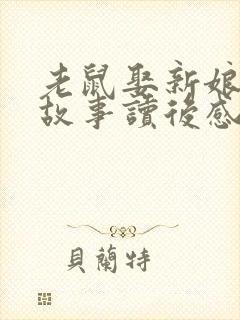 老鼠娶新娘
故事讀後感
貝蘭特